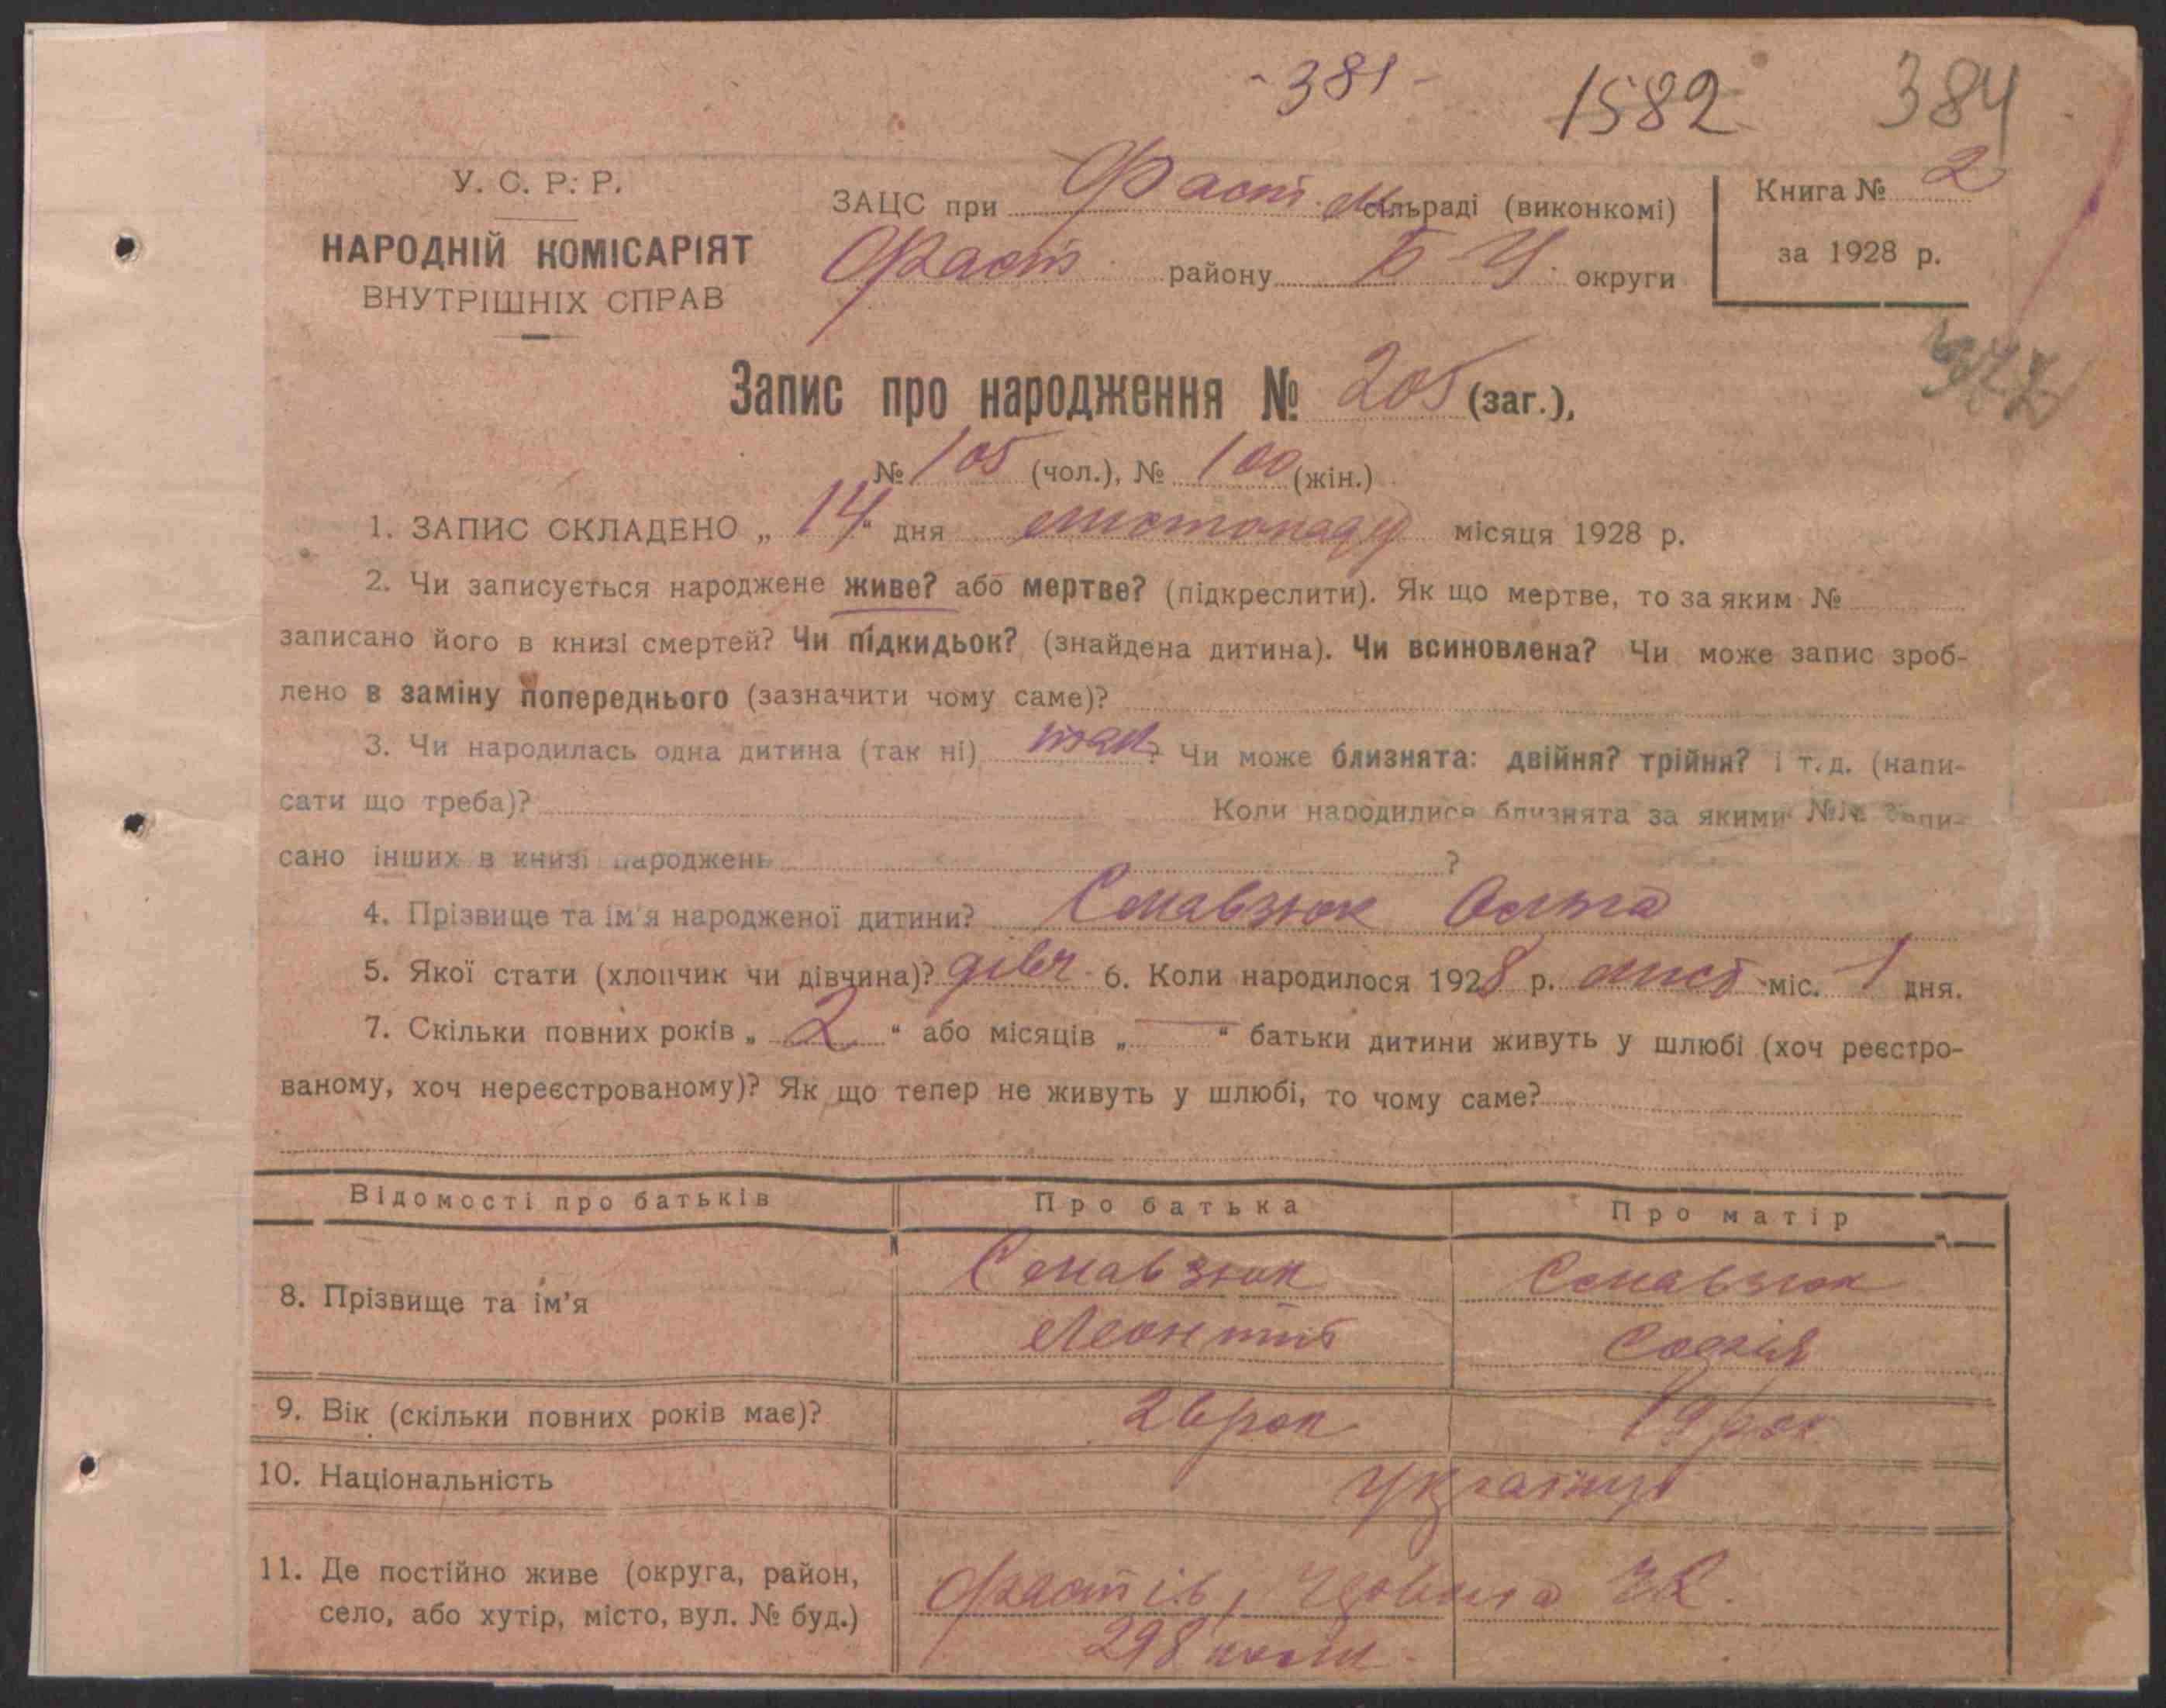 - 381 -
1582
384
У. С. Р. Р.
НАРОДНІЙ КОМІСАРІЯТ
ВНУТРІШНІХ СПРАВ
ЗАЦС при Фаст. м. сільраді (виконкомі)
Фаст. району Б Ц. округи
Книга № 2
за 1928 р.
Запис про народження № 205 (заг.),
№ 105 (чол.), № 100 (жін.)
1. ЗАПИС СКЛАДЕНО „ 14 “ дня листопаду місяця 1928 р.
2. Чи записується народжене живе? або мертве? (підкреслити). Як що мертве, то за яким №
записано його в книзі смертей? Чи підкидьок? (знайдена дитина). Чи всиновлена? Чи може запис зроб-
лено в заміну попереднього (зазначити чому саме)?
3. Чи народилась одна дитина (так ні) так? Чи може близнята: двійня? трійня? і т. д. (напи-
сати що треба)? Коли народилися близнята за якими №№ запи-
сано інших в книзі народжень ?
4. Прізвище та ім'я народженої дитини? Смавзюк Ольга
5. Якої стати (хлопчик чи дівчина)? дівч. 6. Коли народилося 1928 р. лист міс. 1 дня.
7. Скільки повних років „ 2 “ або місяців „ — “ батьки дитини живуть у шлюбі (хоч реєстро-
ваному, хоч нереєстрованому)? Як що тепер не живуть у шлюбі, то чому саме?
Відомості про батьків Про батька Про матір
8. Прізвище та ім'я Смавзюк Смавзюк
Леонтій Софія
9. Вік (скільки повних років має)? 26 рок 19 рок
10. Національність Українці
11. Де постійно живе (округа, район,
село, або хутір, місто, вул. № буд.)
Фастів, Червона
298